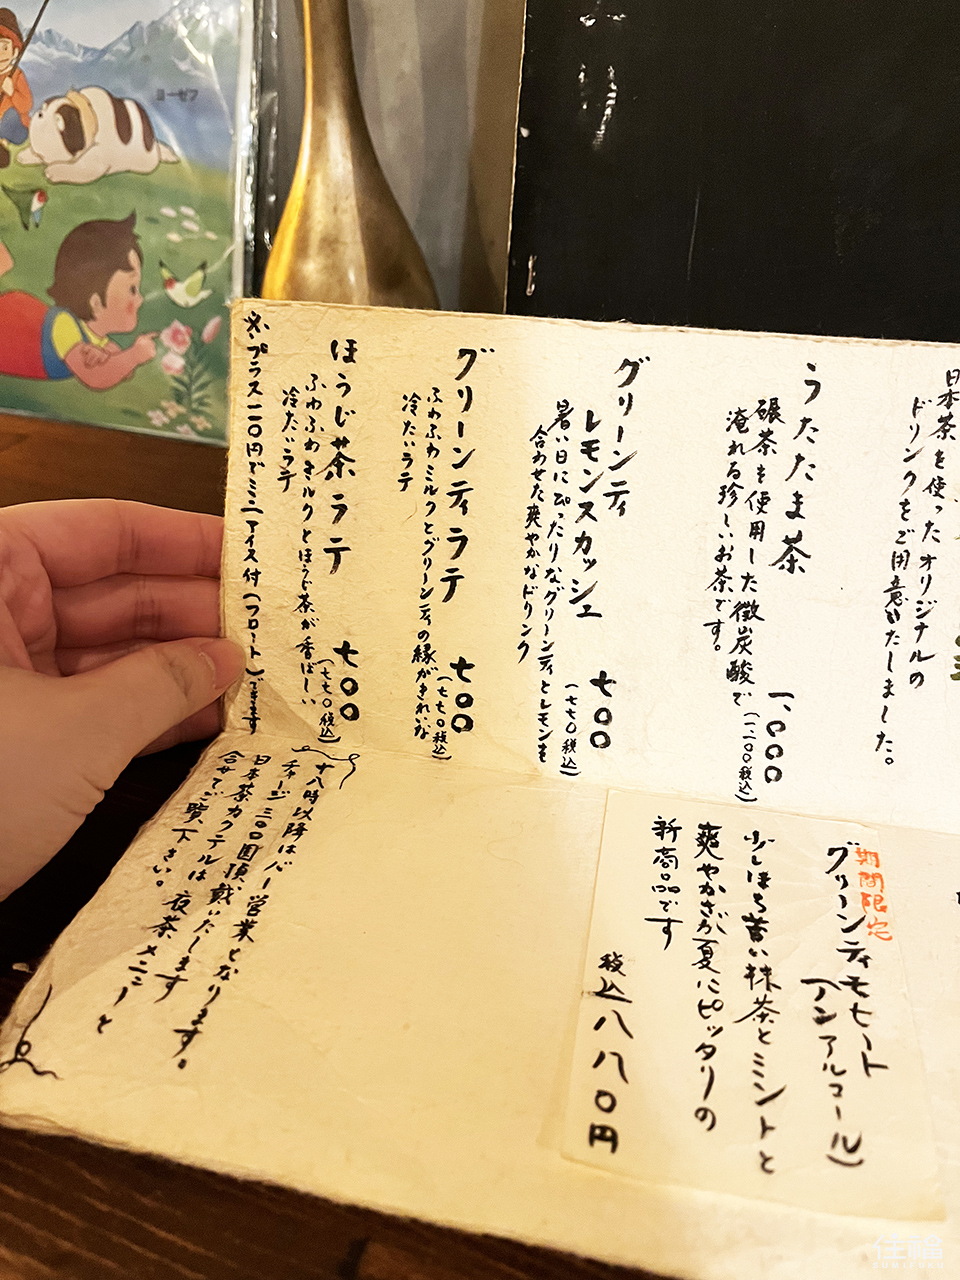 日本茶を使ったオリジナルの
ドリンクをご用意いたしました。
うたたま茶 一、〇〇〇
(一、一〇〇税込)
碾茶を使用した微炭酸で
淹れる珍しいお茶です。
グリーンティ
レモンスカッシュ 七〇〇
(七七〇税込)
暑い日にぴったりなグリーンティとレモンを
合わせた爽やかなドリンク
グリーンティラテ 七〇〇
(七七〇税込)
ふわふわミルクとグリーンティの緑がきれいな
冷たいラテ
ほうじ茶ラテ 七〇〇
(七七〇税込)
ふわふわミルクとほうじ茶が香ばしい
冷たいラテ
※プラス一一〇円でミニアイス付(フロート)できます
期間限定
グリーンティモヒート
(ノンアルコール)
少しほろ苦い抹茶とミントと
爽やかさが夏にピッタリの
新商品です
税込八八〇円
十八時以降はバー営業となります。
チャージ三〇〇円頂戴いたします
日本茶カクテルは夜茶メニューと
合せてご覧下さい。
ヨーゼフ
住福